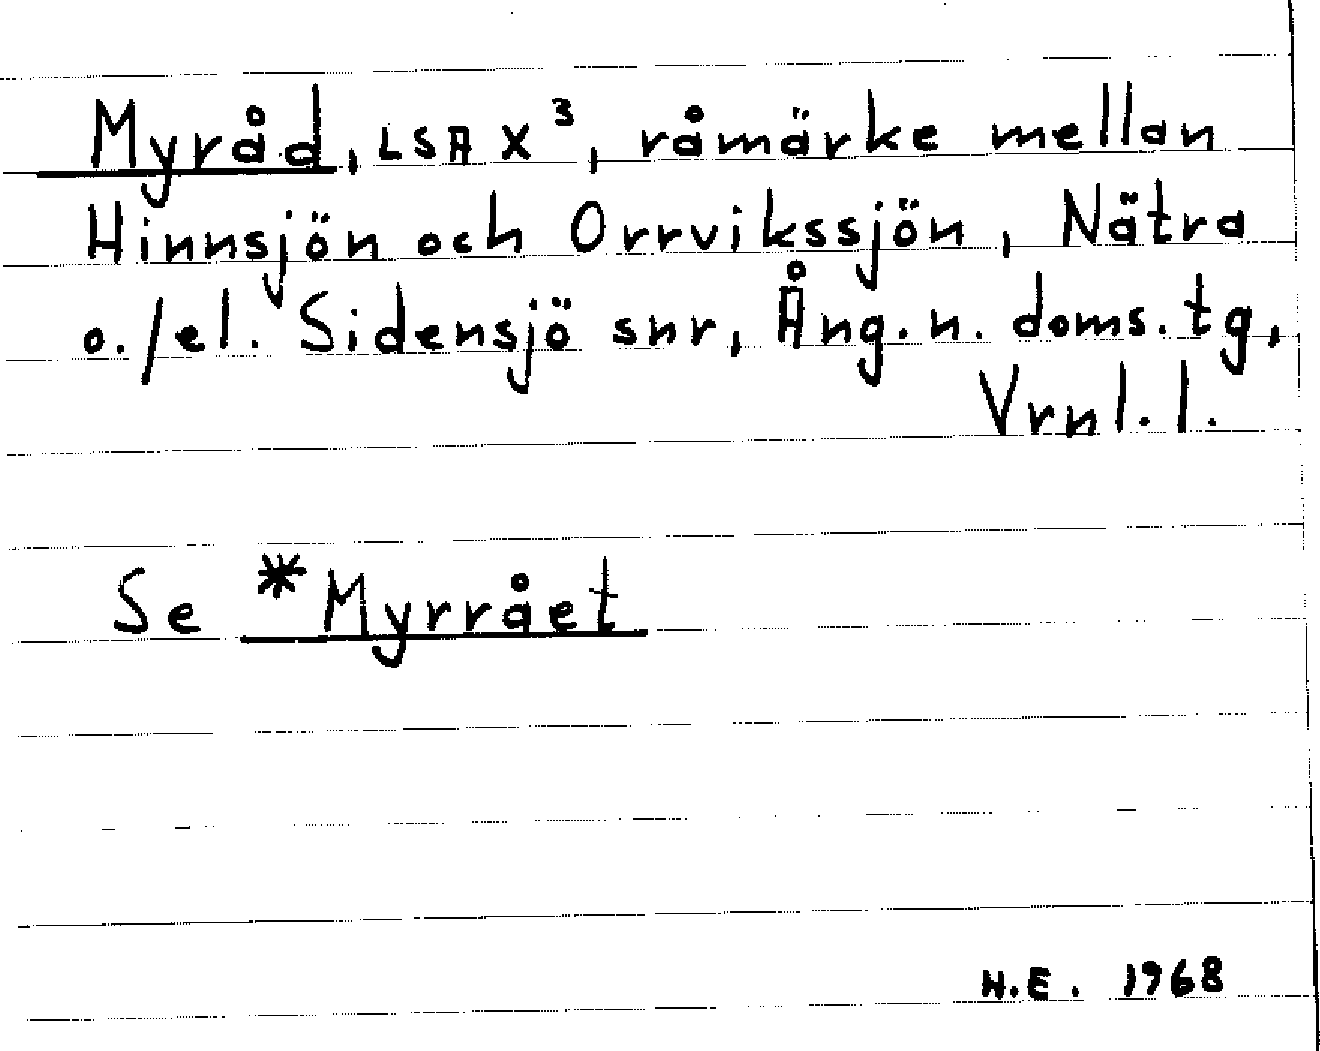 Myråd, LSA X³, råmärke mellan
Hinnsjön och Orrvikssjön, Nätra
o./el. Sidensjö snr, Ång. n. doms. tg,
Vrnl. l.
Se *Myrrået
H.E. 1968